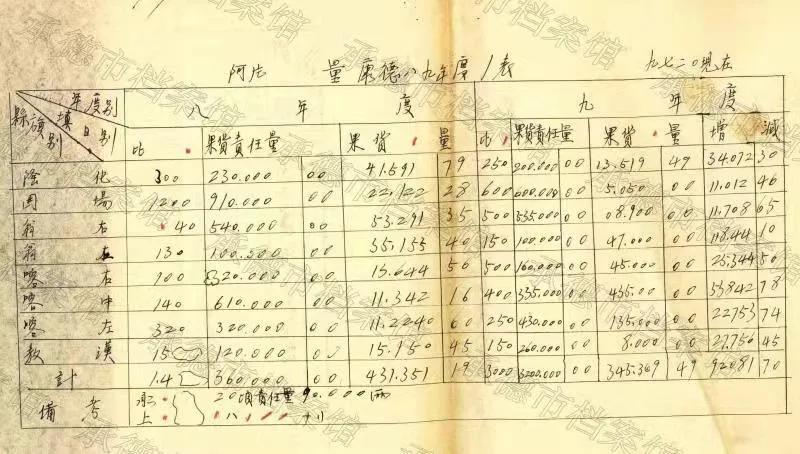 阿片 量 康德八九年度 表 九七二〇現在
年度別 八 年 度 九 年 度
縣旗別 填日別 比 果貨責任量 果貨 量 比 果貨責任量 果貨 量 增 減
隆化 300 230.000 00 41.591 79 250 200.000 00 13.519 49 34072 30
囲場 1200 910.000 00 22.122 28 600 600.000 00 5.050 00 11.012 46
翁右 40 540.000 00 53.291 35 500 535.000 00 08.900 00 11.708 65
翁左 130 100.500 00 35.155 40 150 100.000 00 47.000 00 118.44 10
喀右 100 320.000 00 15.644 56 500 160.000 00 45.000 00 25.344 50
喀中 140 610.000 00 11.342 16 400 335.000 00 435.00 00 53842 78
喀左 320 320.000 00 11.2240 00 250 430.000 00 135.000 00 22753 74
敖漢 15 120.000 00 15.150 45 150 260.000 00 8.000 00 21.756 45
計 14 360.000 00 431.351 19 3000 3200.000 00 345.369 49 92081 70
備考 20頃責任量90.000両
上 八 十八
承德市档案馆